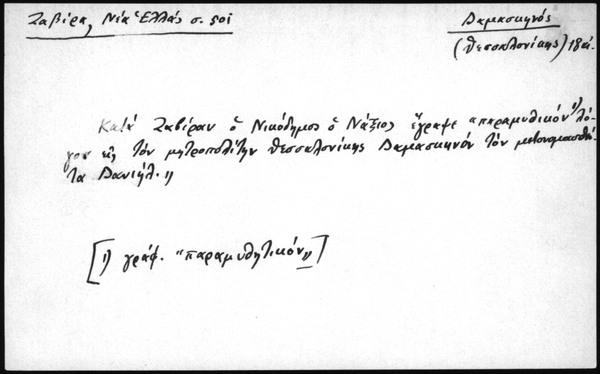 Ζαβίρα, Νέα Ἑλλάς σ. 501
Δαμασκηνός
(Θεσσαλονίκης) 18 αἰ.
Κατά Ζαβίραν ὁ Νικόδημος ὁ Νάξιος ἔγραψε "παραμυθικόν¹⁾ λό-
γον εἰς τόν μητροπολίτην Θεσσαλονίκης Δαμασκηνόν τόν μετονομασθέν-
τα Δανιήλ."
[1) γράφ. "παραμυθητικόν"]